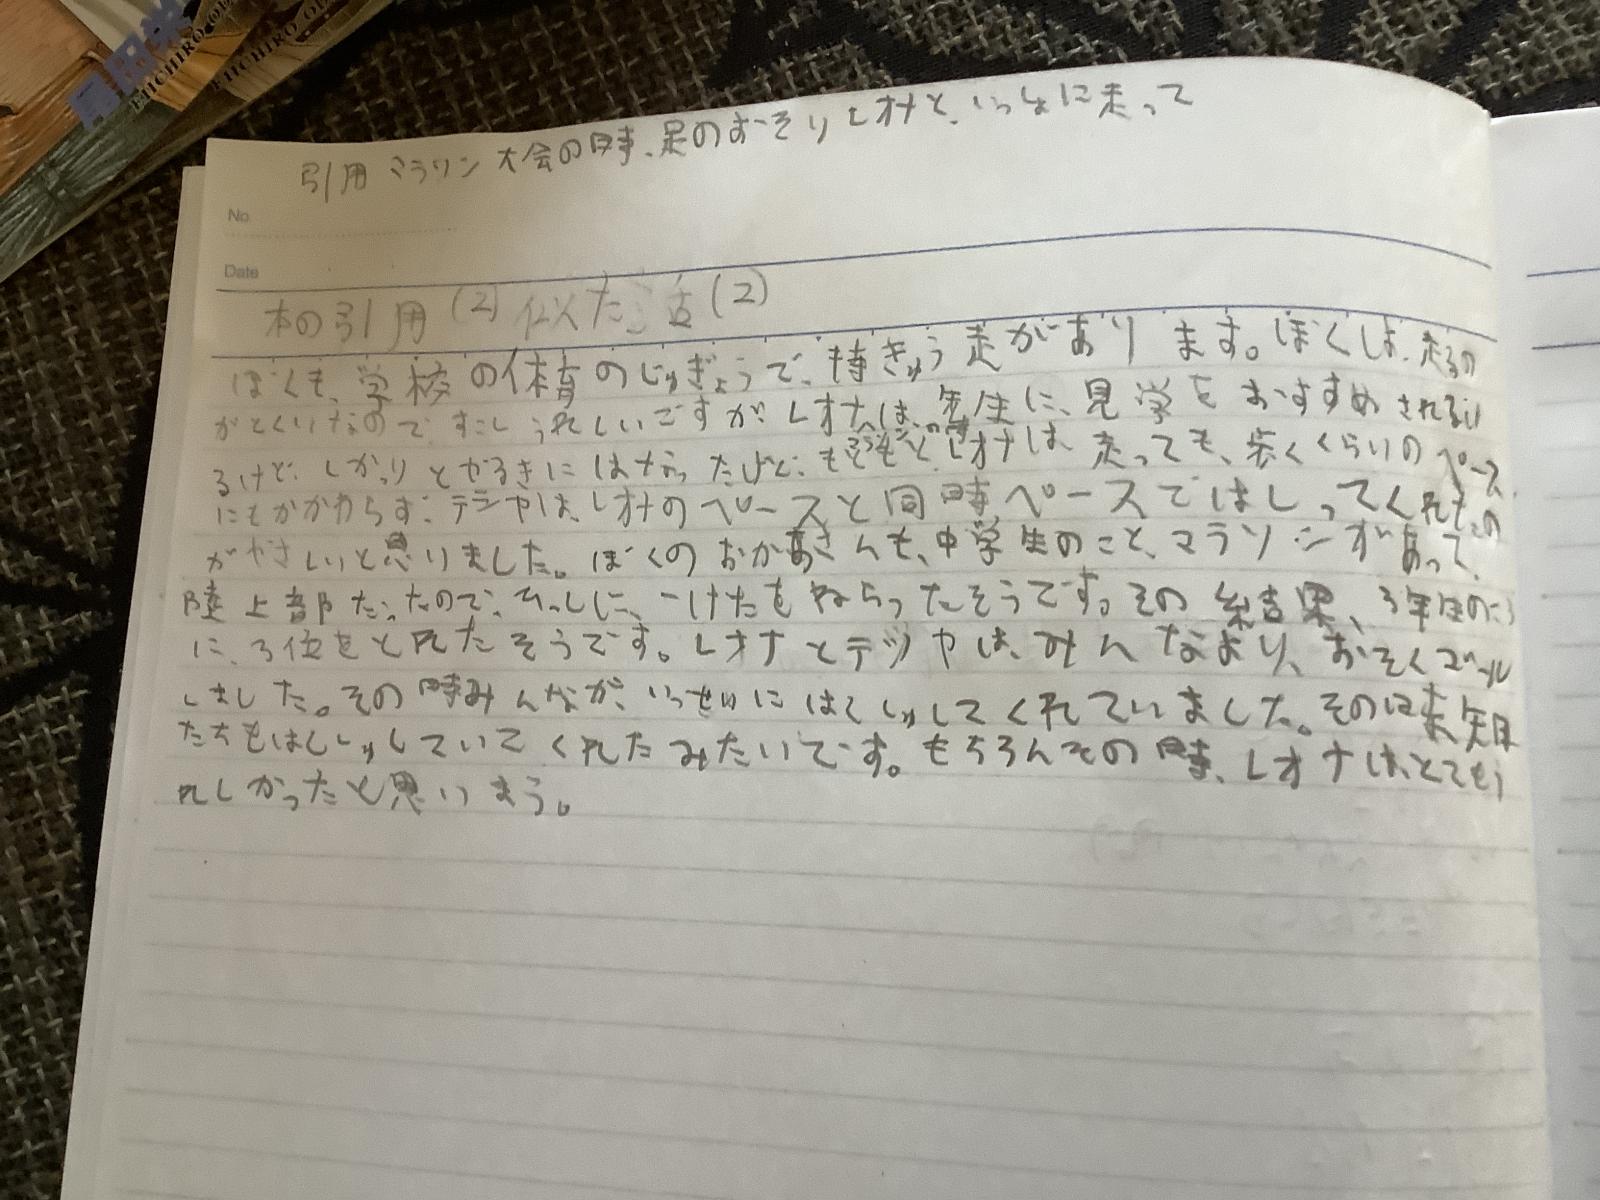 尾田栄
EIICHIRO OD
EIICHIRO O
引用 マラソン大会の時、足のおそいレオナと、いっしょに走って
No.
Date
本の引用(2)似た話(2)
ぼくも、学校の体育のじゅぎょうで、持きゅう走があります。ぼくは、走るの
がとくいなので、すこしうれしいですが、レオナは、先生に、見学をおすすめされるい
るけど、しかりとやるきにはなったけど、もそもそと、レオナは、走っても、歩くくらいのペース
にもかかわらず、テツヤは、レオナのペースと同時ペースではしってくれたの
がやさしいと思いました。ぼくのおかあさんも、中学生のこと、マラソンがあって、
陸上部だったので、ひっしに、一けたをねらったそうです。その結果、3年生のころ
に、3位をとれたそうです。レオナとテツヤは、みんなより、おそくゴール
しました。その時みんなが、いっせいにはくしゅしてくれていました。そのは来年
たちもはくしゅしていてくれたみたいです。もちろんその時、レオナは、とてもう
れしかったと思いまう。